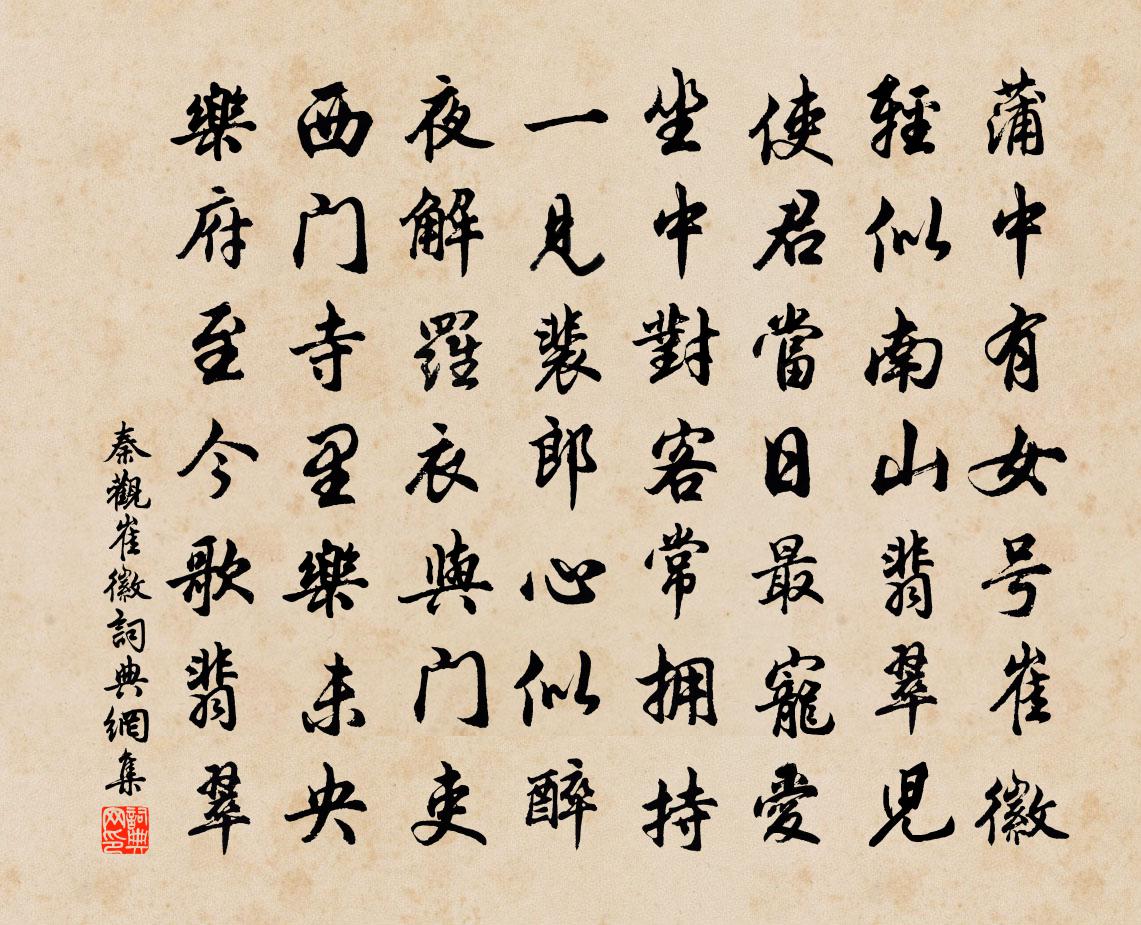 蒲中有女号崔徽
輕似南山翡翠兒
使君當日最寵愛
坐中對客常拥持
一見裴郎心似醉
夜解羅衣與门吏
西门寺里樂未央
樂府至今歌翡翠
秦觀崔徽詞典網集
詞典网印